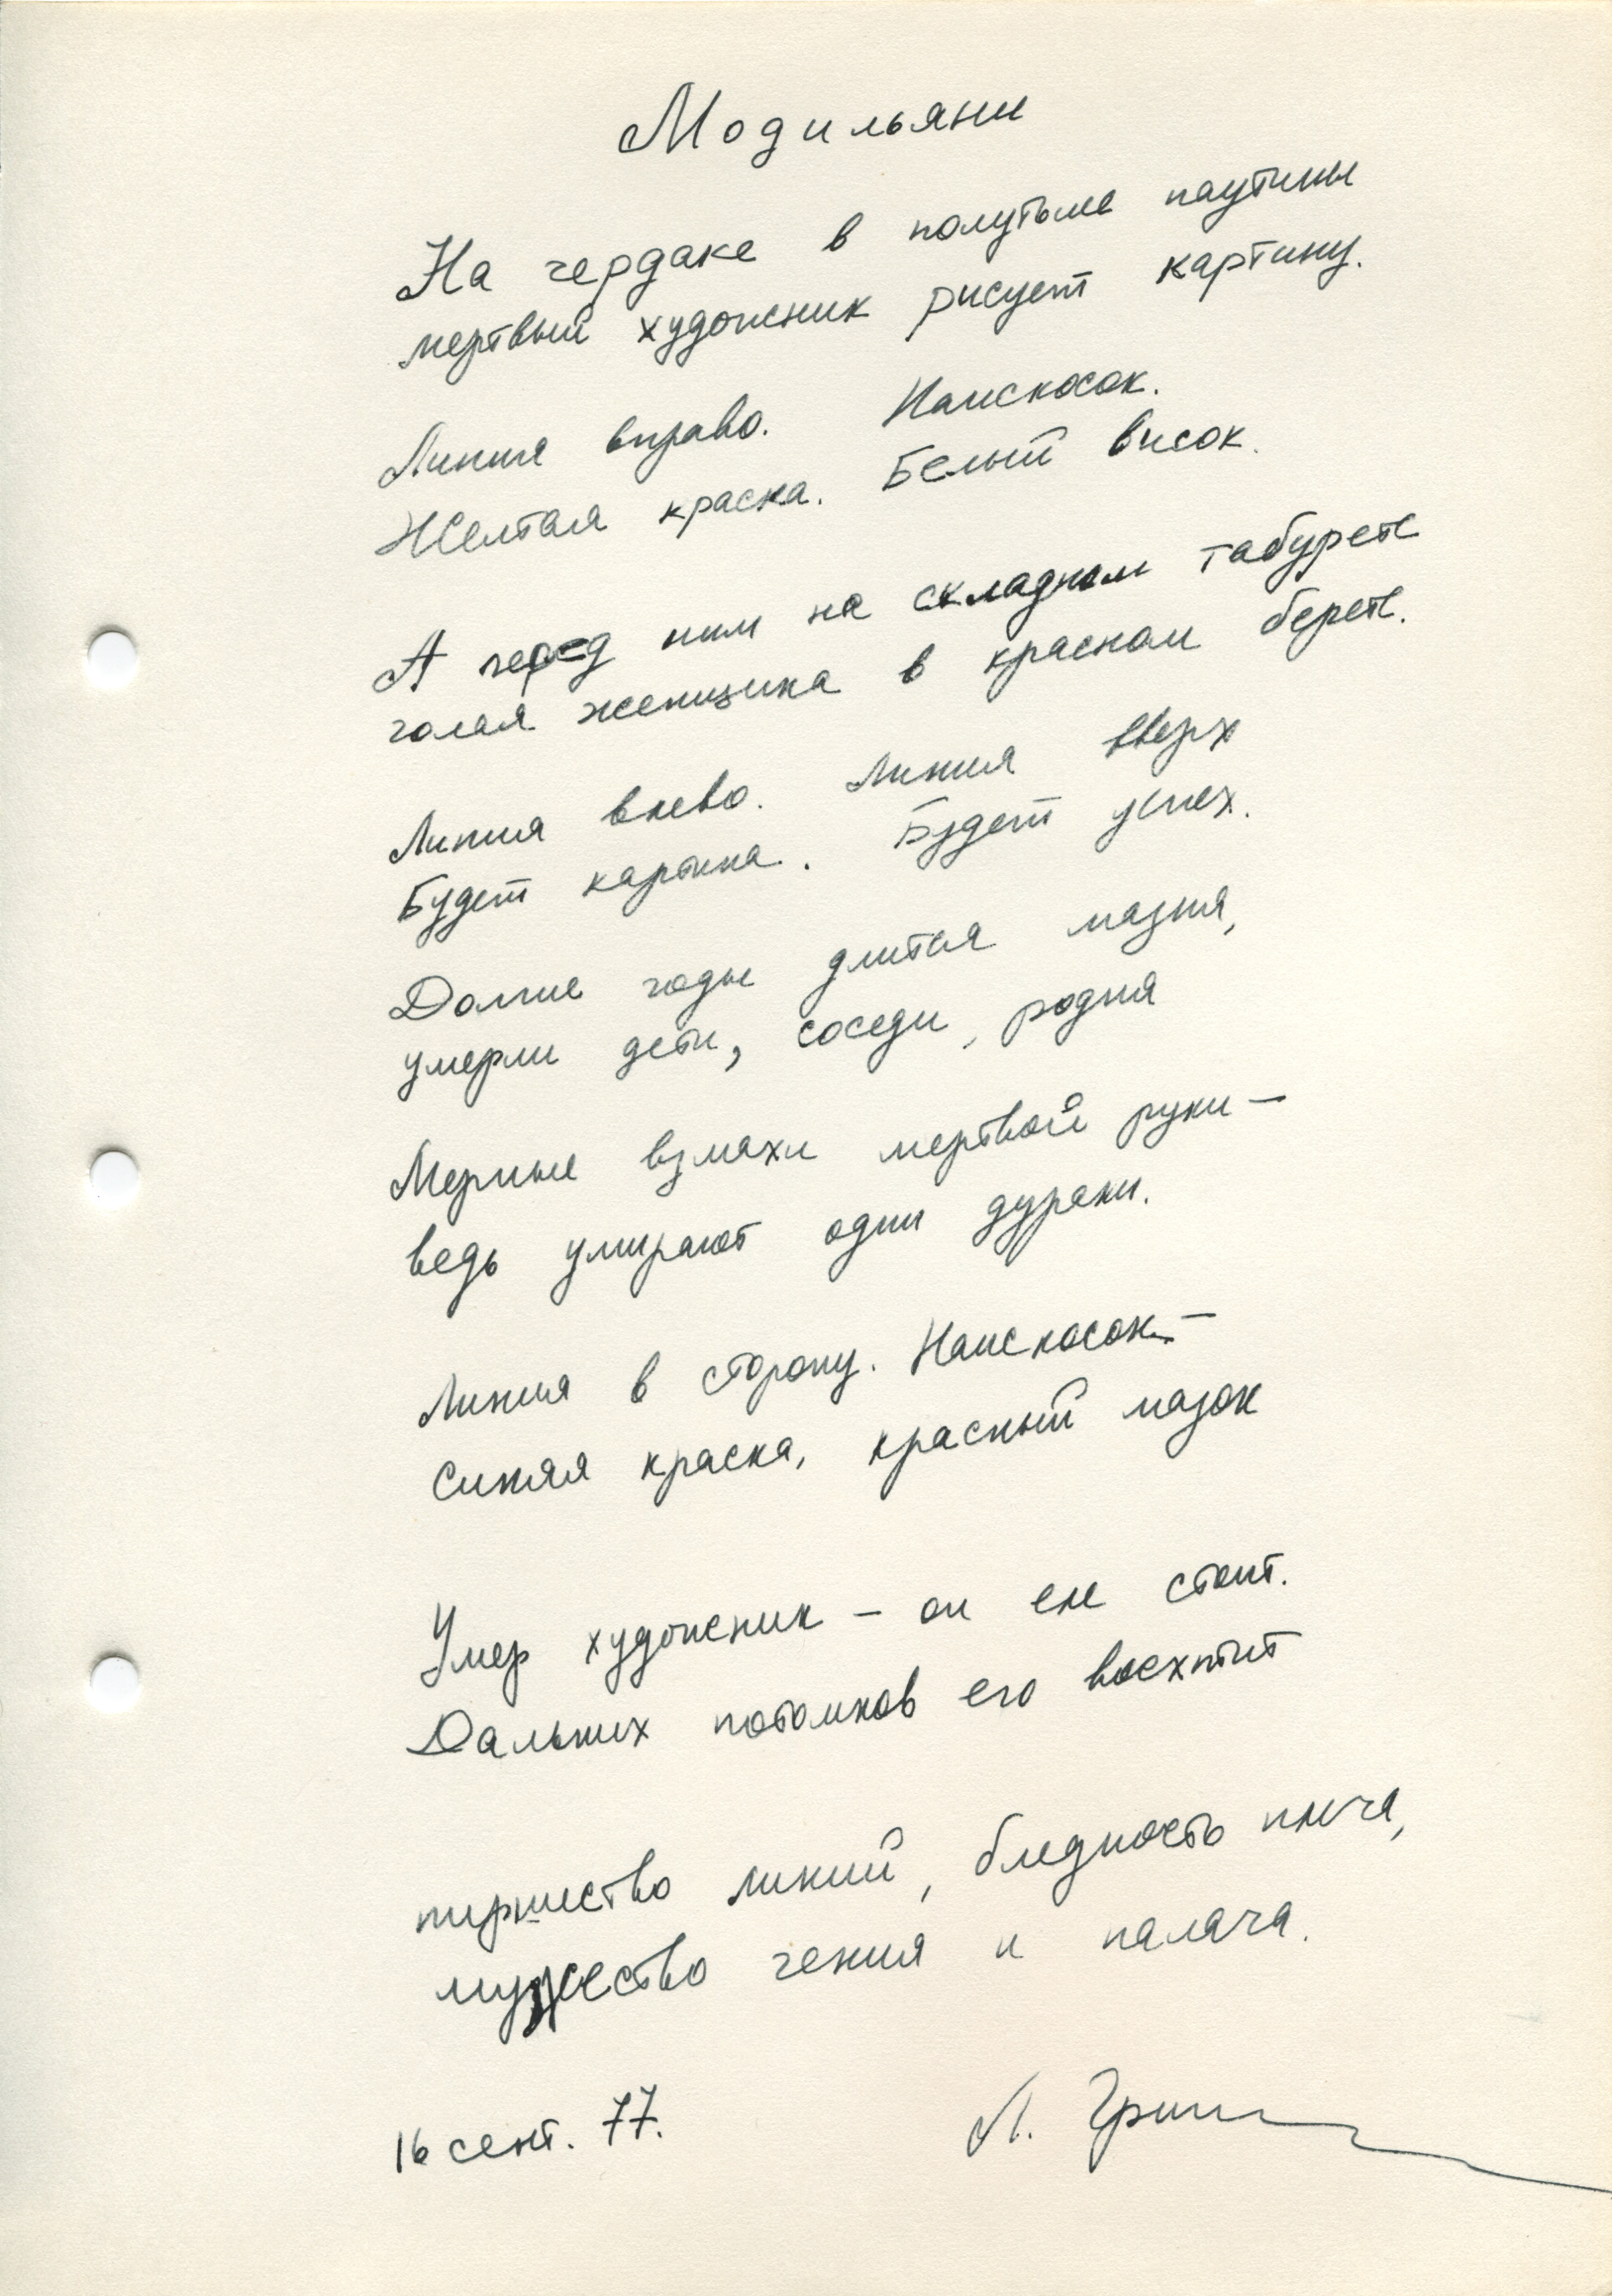 Модильяни
На чердаке в полутьме паутины
мертвый художник рисует картину.
Линия вправо. Наискосок.
Желтая краска. Белый висок.
А перед ним на складном табурете
голая женщина в красном берете.
Линия влево. Линия вверх
Будет картина. Будет успех.
Долгие годы длится мазня,
умерли дети, соседи, родня
Мерные взмахи мертвой руки —
ведь умирают одни дураки.
Линия в сторону. Наискосок —
Синяя краска, красный мазок
Умер художник — он еле стоит.
Дальних потомков его восхитит
пиршество линий, бледность плеча,
мужество гения и палача.
16 сент. 77.
Л.